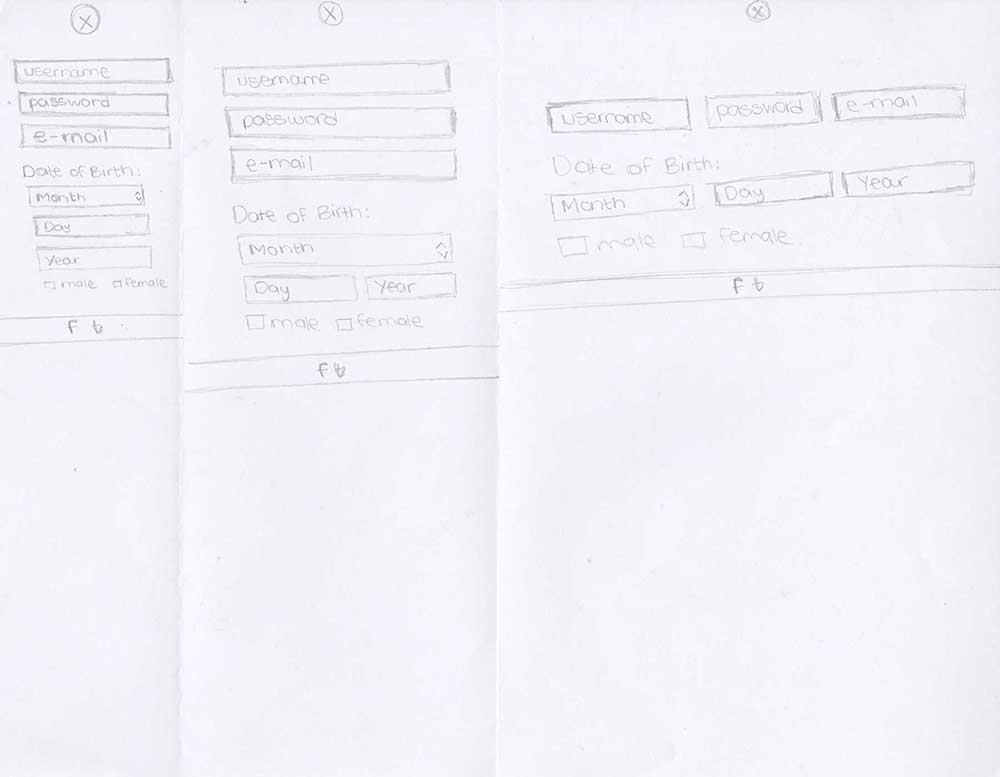 X
username
password
e-mail
Date of Birth:
Month
Day
Year
male female
f t
X
username
password
e-mail
Date of Birth:
Month
Day Year
male female
f t
X
username password e-mail
Date of Birth:
Month Day Year
male female
f t